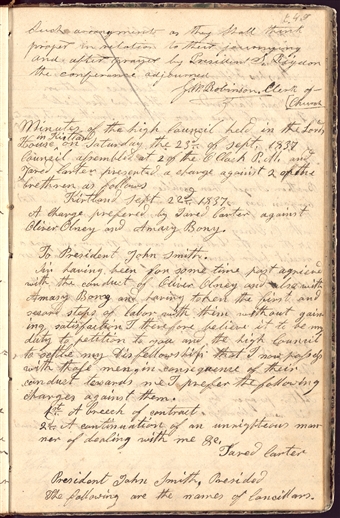 Such arrangements as they shall think
proper in relation to their journeying
and after prayer by President S. Rigdon
the conference adjourned
G. W. Robinson, Clerk of
Church
Minutes of the high Council held in the Lords
in Kirtland
House, on Saturday the 23rd of Sept. 1837
Council assembled at 2 of the C lock P.M. and
Jared Carter presented a charge against 2 of the
brethren as follows
Kirtland Sept. 22nd 1837.
A Charge prefered by Jared Carter against
Oliver Olney and Amasy Bony.
To President John Smith.
Sir having been for some time past agrieved
with the conduct of Oliver Olney and also with
Amasy Bony and having taken the first and
second steps of labor with them without gain
ing satisfaction I therefore believe it to be my
duty to petition to you and the high Council
to settle my disfellowship that I now possess
with those men, in consequence of their
conduct towards me I prefer the following
charges against them.
1st A breech of contract.
2nd A continuation of an unrighteous man
ner of dealing with me &c.
Jared Carter
President John Smith, Presided
The following are the names of Councillors.